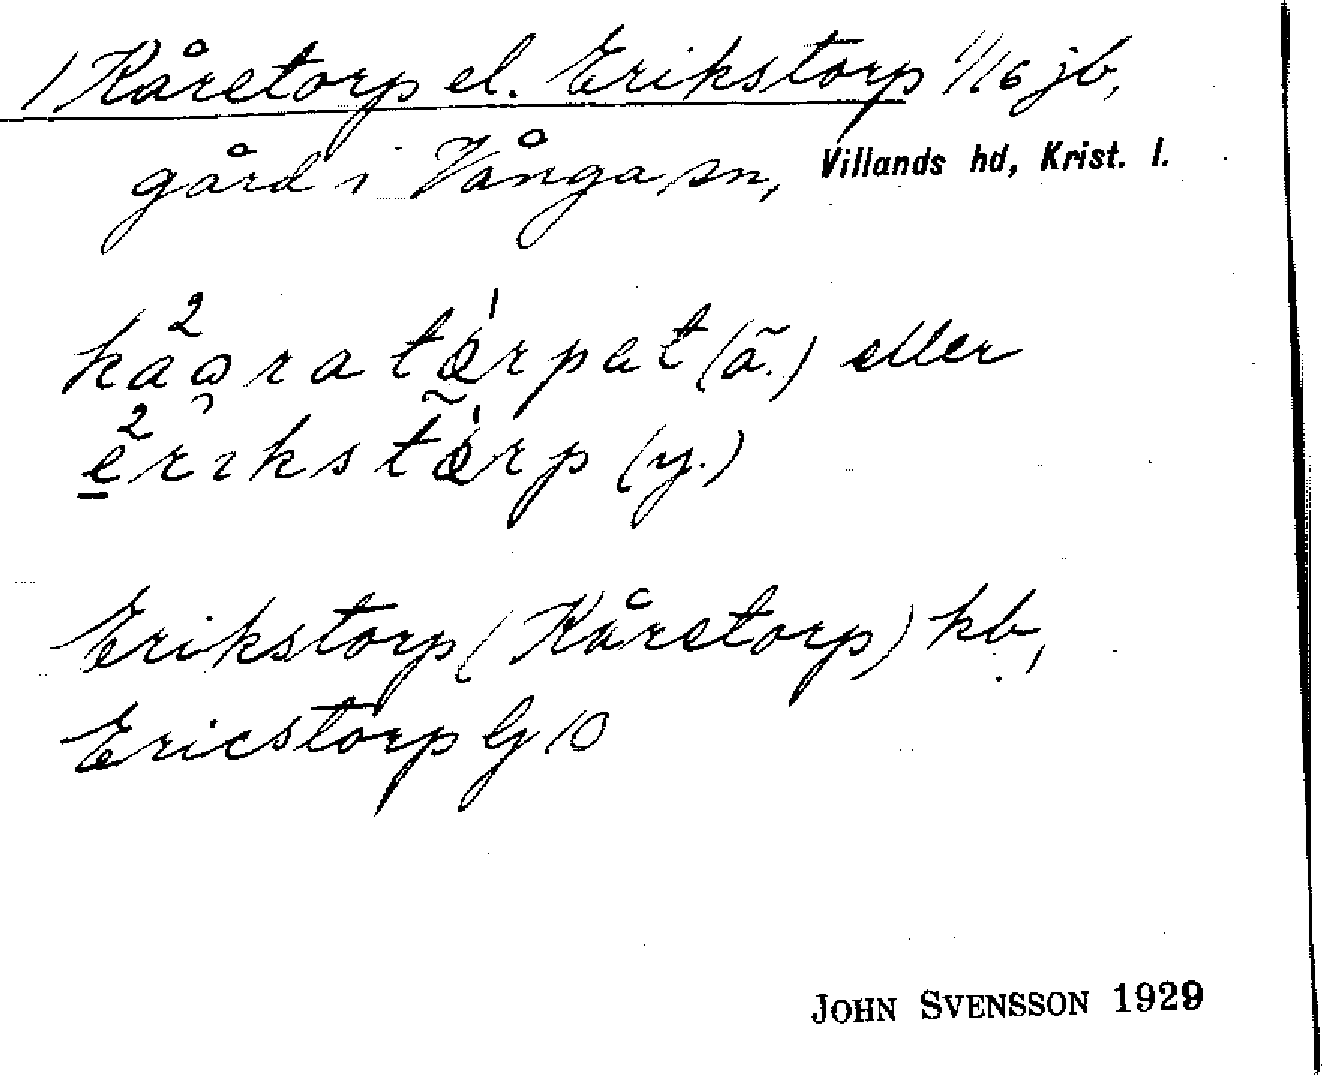 1 Kåretorp el. Erikstorp 1/16 jb,
gård i Vånga sn, Villands hd, Krist. l.
kaaratarpat (ä.) eller
erikstarp (y.)
Erikstorp (Kåretorp) kb,
Ericstorp Gf 10
JOHN SVENSSON 1929